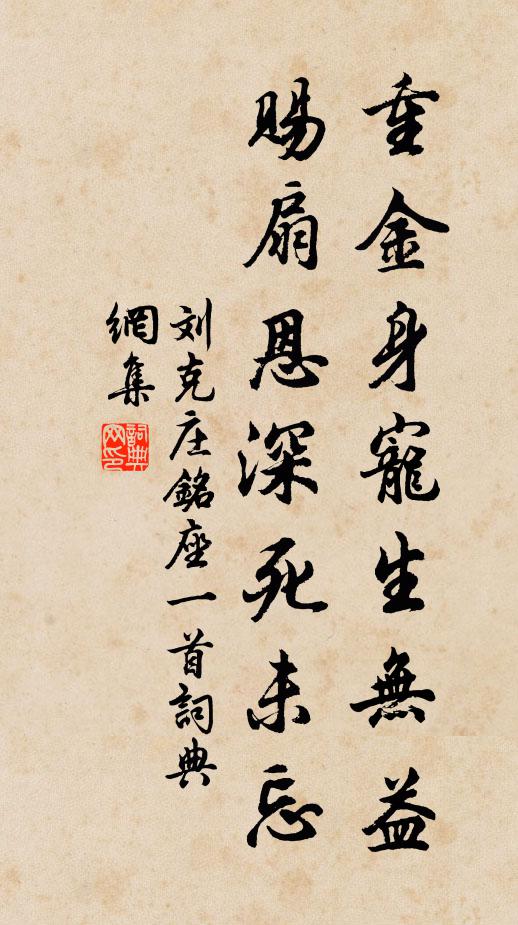 重金身寵生無益
賜扇恩深死未忘
刘克庄銘座一首詞典
網集
詞典网印